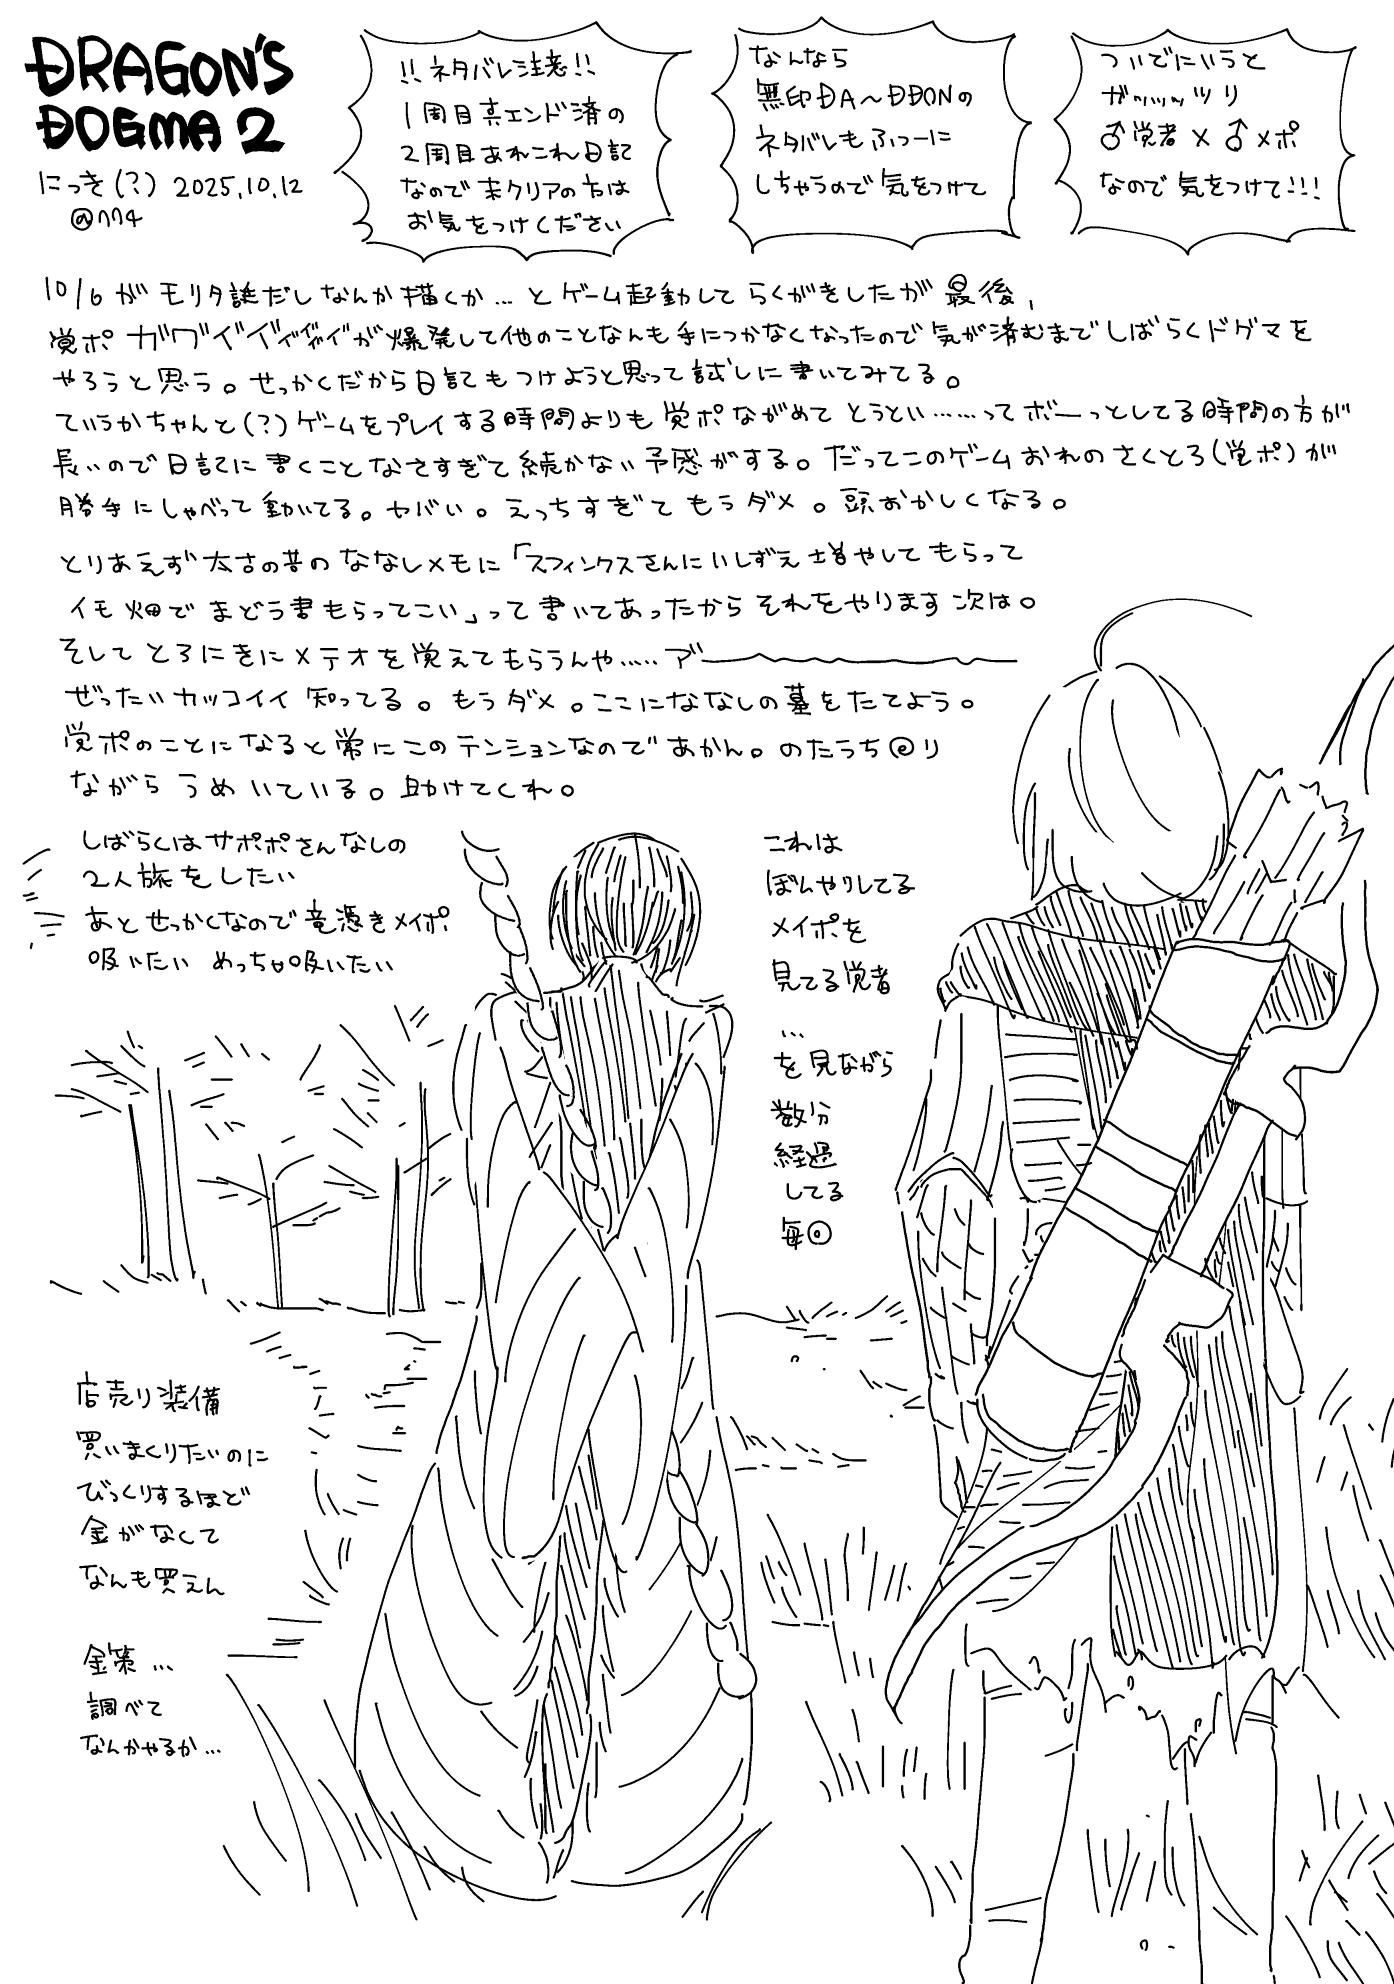 DRAGON'S
DOGMA 2
にっき(?) 2025.10.12
!!ネタバレ注意!!
1周目真エンド済の
2周目あれこれ日記
なので未クリアの方は
お気をつけください
なんなら
無印DA〜DDONの
ネタバレもふつーに
しちゃうので気をつけて
ついでにいうと
ガッッッツリ
♂覚者×♂メポ
なので気をつけて!!!
10/6がモリタ誕だしなんか描くか…とゲーム起動してらくがきしたが最後,
覚ポガワイイイイイイが爆発して他のことなんも手につかなくなったので気が済むまでしばらくドグマを
やろうと思う。せっかくだから日記もつけようと思って試しに書いてみてる。
ていうかちゃんと(?)ゲームをプレイする時間よりも覚ポながめてとうとい……ってボーっとしてる時間の方が
長いので日記に書くことなさすぎて続かない予感がする。だってこのゲームおれのさくとろ(覚ポ)が
勝手にしゃべって動いてる。ヤバい。えっちすぎてもうダメ。頭おかしくなる。
とりあえず太古の昔のななしメモに「スフィンクスさんにいしずえ増やしてもらって
イモ畑でまどう書もらってこい」って書いてあったからそれをやります次は。
そしてとろにきにメテオを覚えてもらうんや…‥ア゛ーーー
ぜったいカッコイイ知ってる。もうダメ。ここにななしの墓をたてよう。
覚ポのことになると常にこのテンションなのであかん。のたうち@り
ながらうめいている。助けてくれ。
しばらくはサポポさんなしの
2人旅をしたい
あとせっかくなので竜憑きメイポ
吸いたい めっちゃ吸いたい
これは
ぼんやりしてる
メイポを
見てる覚者
…
を見ながら
数分
経過
してる
毎回
店売り装備
買いまくりたいのに
びっくりするほど
金がなくて
なんも買えん
金策…
調べて
なんかやるか…